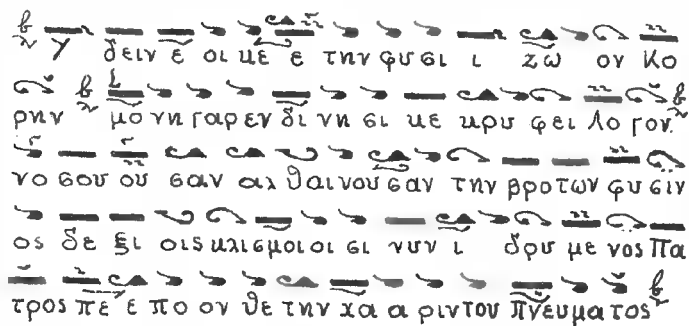 γ δειν ε οι κε ε την φυσι ι ζω ον Κο
ρην μο νη γαρ εν δι νη σι κε κρυ φει λο γον
νο σου ου σαν αλ θαινου σαν την βροτων φυσιν
ος δε ξι οις κλισμοι οι σι νυν ι δρυ με νος Πα
τρος πε ε πο ον θε την χα α ριν του πνευματος